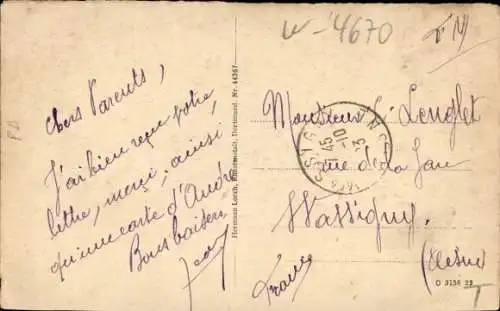 W-4670
F M
Chers Parents,
J'ai bien reçu votre
lettre, merci, ainsi
qu'une carte d'André
Bons baisers
Hermann Lorch, Kunstanstalt, Dortmund. Nr. 44367
Monsieur Lenglet
rue de la Gare
Wassigny.
(Aisne)
France
O 3156 22
T